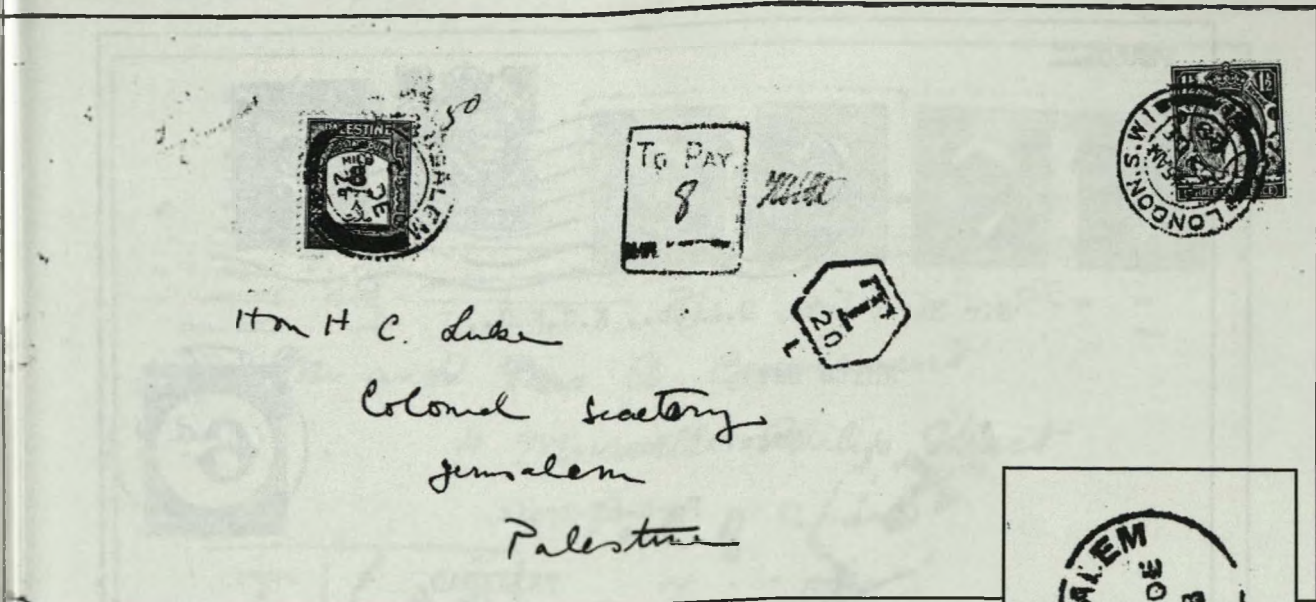 50
PALESTINE
MILS
JERUSALEM
TO PAY.
8
1½
LONDON. S.W.1
T
20
L
Hon H C. Luke
Colonial Secretary
Jerusalem
Palestine
ALEM